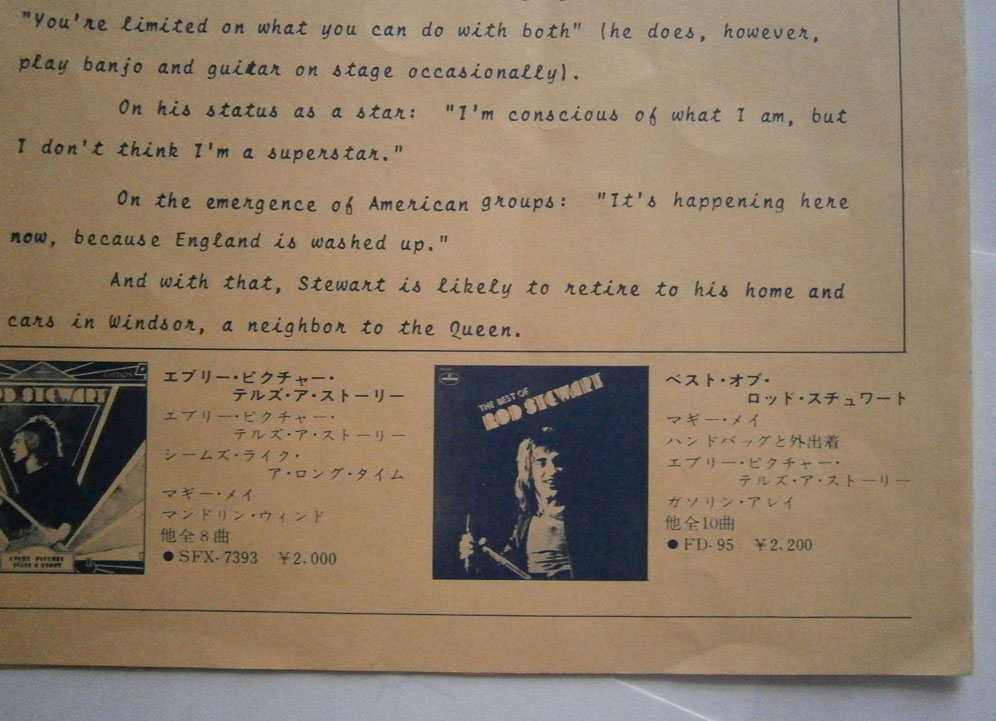 "You're limited on what you can do with both" (he does, however,
play banjo and guitar on stage occasionally).
On his status as a star: "I'm conscious of what I am, but
I don't think I'm a superstar."
On the emergence of American groups: "It's happening here
now, because England is washed up."
And with that, Stewart is likely to retire to his home and
cars in Windsor, a neighbor to the Queen.
STEWART
エブリー・ピクチャー・
テルズ・ア・ストーリー
エブリー・ピクチャー・
テルズ・ア・ストーリー
シームズ・ライク・
ア・ロング・タイム
マギー・メイ
マンドリン・ウィンド
他全8曲
●SFX-7393 ¥2,000
THE BEST OF
ROD STEWART
ベスト・オブ・
ロッド・スチュワート
マギー・メイ
ハンドバッグと外出着
エブリー・ピクチャー・
テルズ・ア・ストーリー
ガソリン・アレイ
他全10曲
●FD-95 ¥2,200